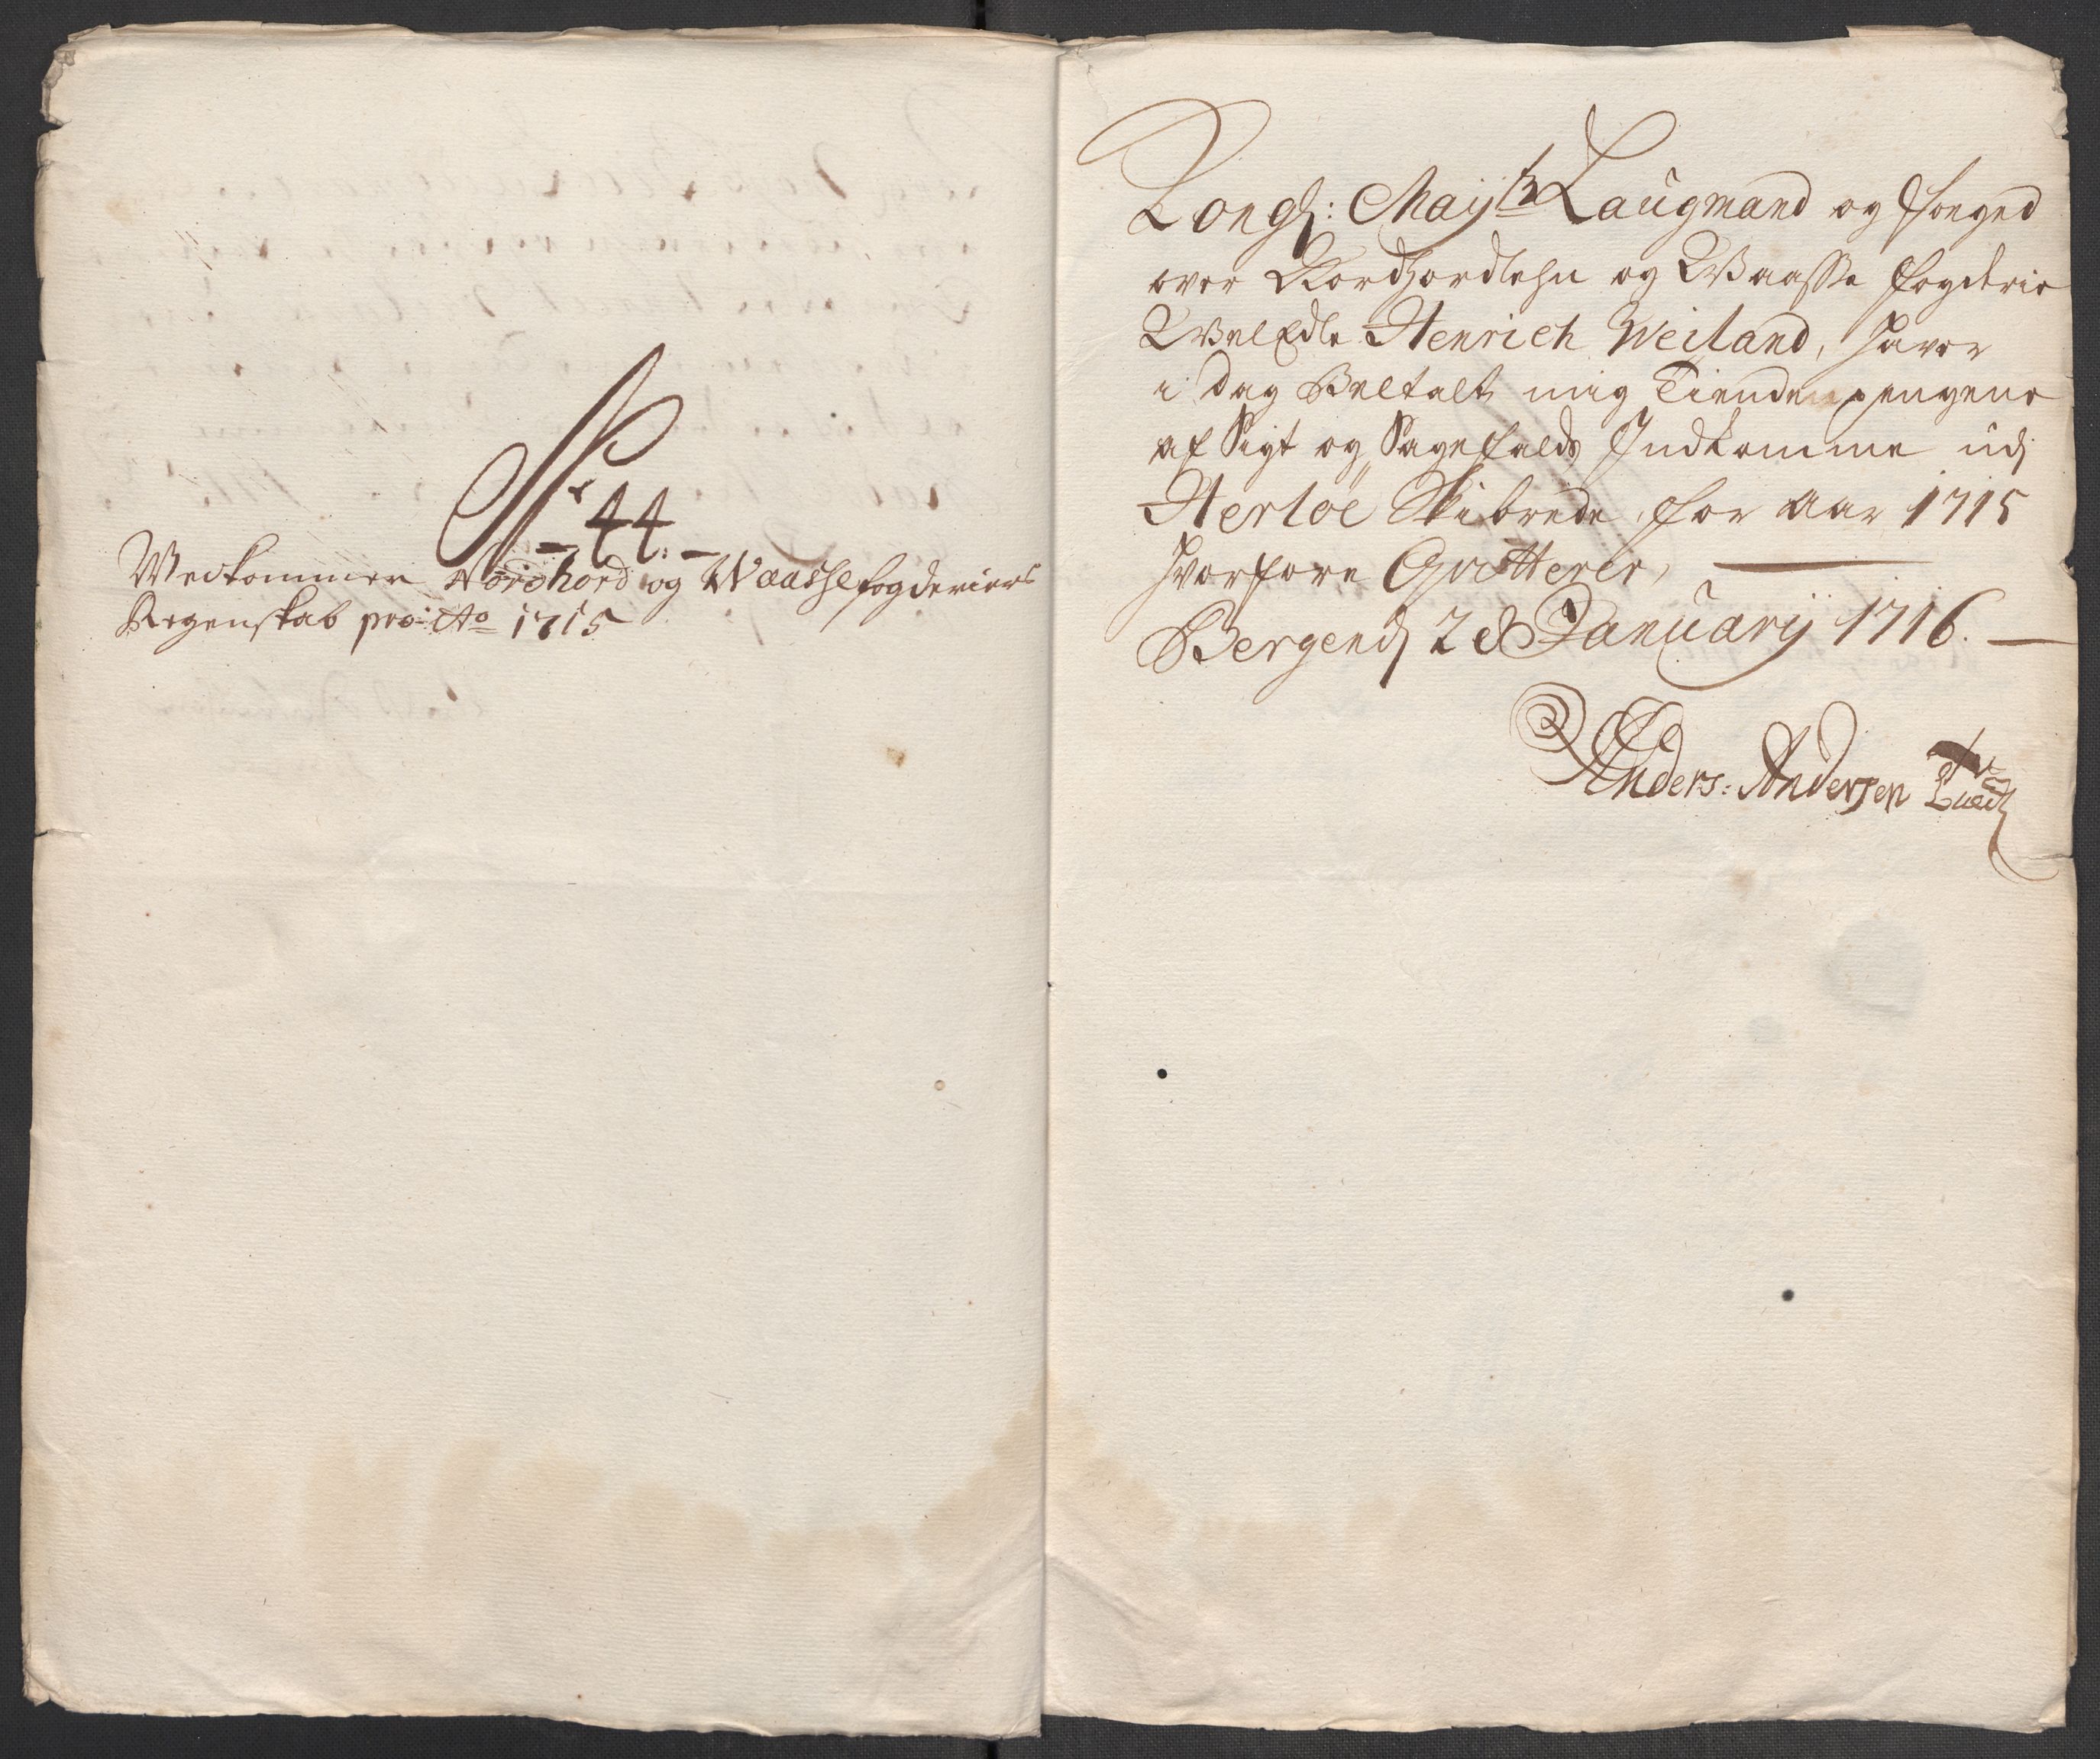 No 44.
Vedkommer Nordhord og Waasse fogderiers
Regenskab pro Ao 1715
Kongl: Mayts Laugmand og Foeged
over Nordhordlehn og Waasse fogderie
WelEdle Henrich Weiland, haver
i dag Betalt mig Tiendepengene
af Sigt og Sagefalds Indkomme udj
Herlöe Skibrede, for Aar 1715
hvorfore Qvitterer,
Bergen d 28 Januarij 1716.
Anders: Andersen